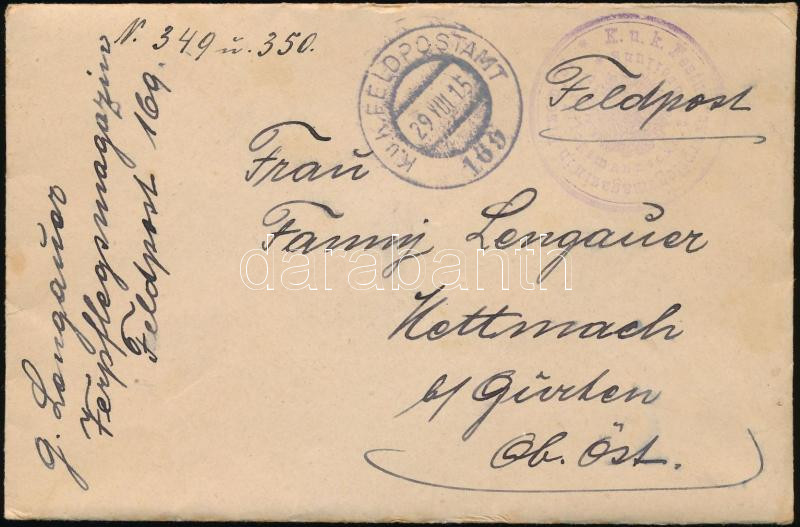 N. 349 u. 350.
g. Lengauer
Verpflegsmagazin
Feldpost 169.
K.u.K. FELDPOSTAMT
29 VIII 15
169
K. u. k.
Feldpost
Frau
Fanny Lengauer
Mettmach
b/ Gurten
Ob. Öst.
darabanth